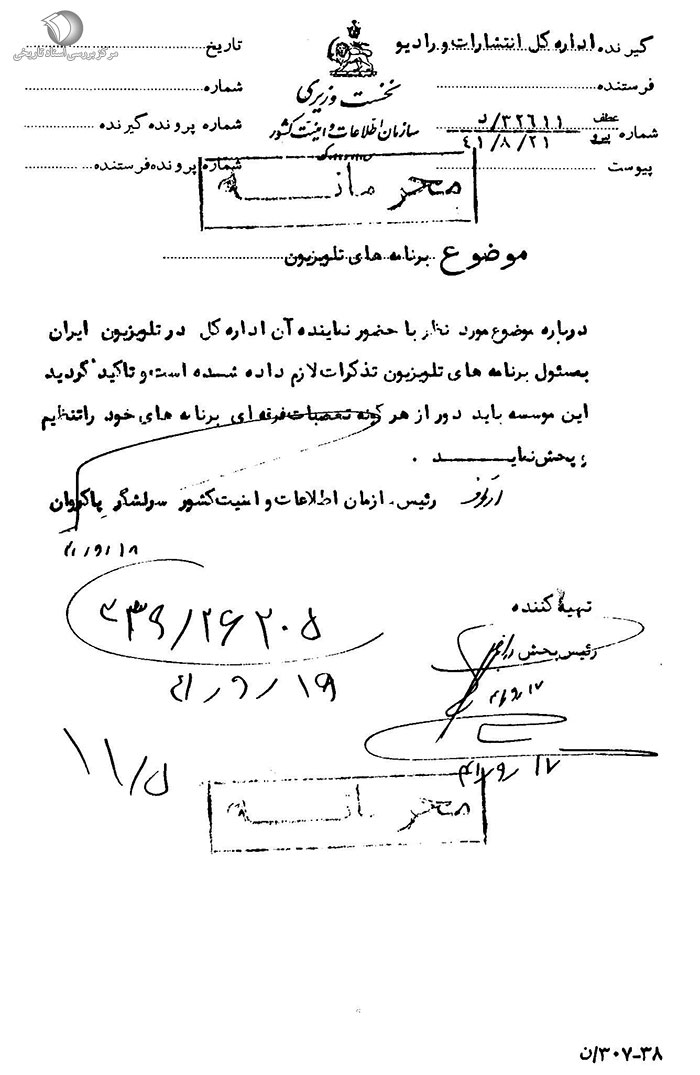 مرکز بررسی اسناد تاریخی
گیرنده اداره کل انتشارات و رادیو
تاریخ
نخست وزیری
فرستنده
شماره
سازمان اطلاعات و امنیت کشور
شماره
عطف
پیرو
۳۲۶۱۱/د
۴۱/۸/۲۱
شماره پرونده گیرنده
پیوست
شماره پرونده فرستنده
محرمانه
موضوع برنامه های تلویزیون
درباره موضوع مورد نظر با حضور نماینده آن اداره کل در تلویزیون ایران
بمسئول برنامه های تلویزیون تذکرات لازم داده شده است و تاکید گردید
این موسسه باید دور از هر گونه تعصبات فرقه ای برنامه های خود را تنظیم
و پخش نماید .
رئیس سازمان اطلاعات و امنیت کشور سرلشگر پاکروان
از طرف
۱۸
تهیه کننده
۳۳۹/۲۶۲۰۵
رئیس بخش
۴۱/۹/۱۹
۱۷
۱۱/۵
۱۷
محرمانه
۳۰۷-۳۸/ن